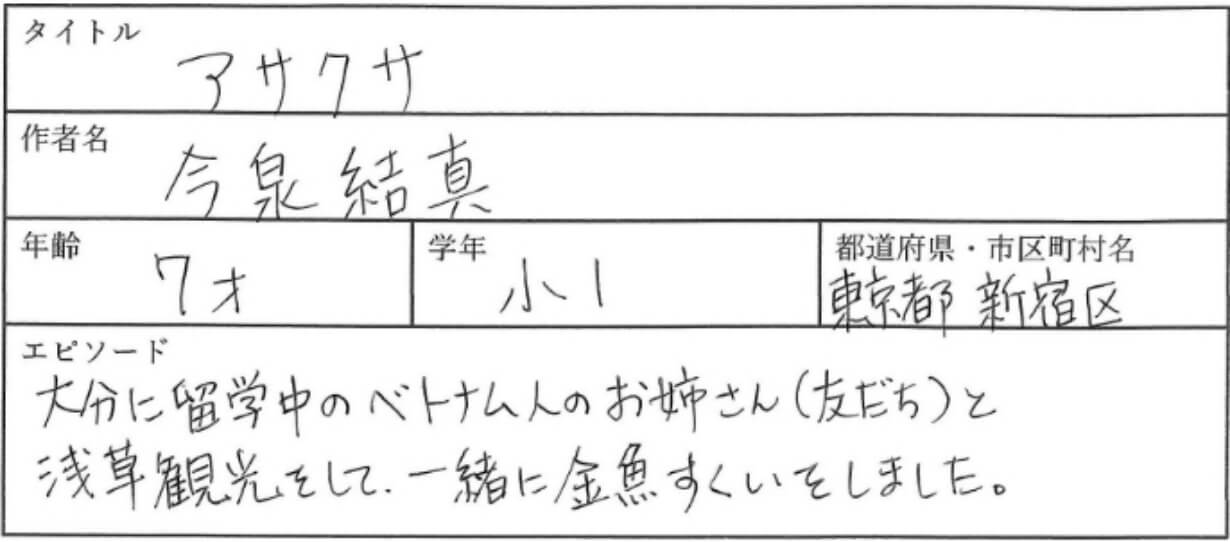 タイトル
アサクサ
作者名
今泉結真
年齢
7才
学年
小1
都道府県・市区町村名
東京都 新宿区
エピソード
大分に留学中のベトナム人のお姉さん(友だち)と
浅草観光をして、一緒に金魚すくいをしました。